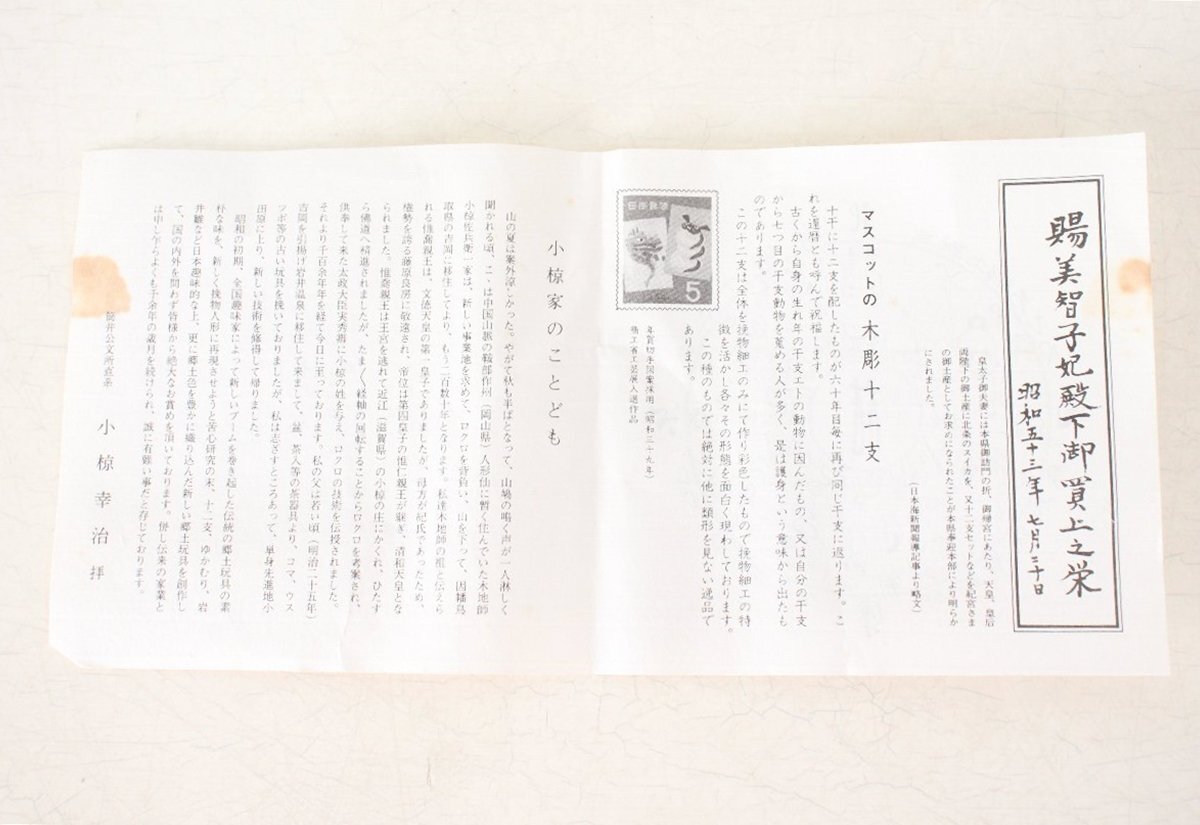 賜美智子妃殿下御買上之栄
昭和五十三年七月二十日
皇太子御夫妻には本県御訪問の折、御帰宮にあたり、天皇、皇后
両陛下の御土産に北条のスイカを、又十二支セットなどを紀宮さま
の御土産としてお求めになられたことが本県奉迎本部により明らか
にされました。
(日本海新聞報導記事より略文)
マスコットの 木彫十二支
十干に十二支を配したものが六十年目毎に再び同じ干支に返ります。こ
れを還暦とも呼んで祝福します。
古くから自身の生れ年の干支エトの動物に因んだもの、又は自分の干支
から七つ目の干支動物を蒐める人が多く、是は護身という意味から出たも
のであります。
この十二支は全体を挽物細工のみにて作り彩色したもので挽物細工の特
徴を活かし各々その形態を面白く現わしております。
この種のものでは絶対に他に類形を見ない逸品で
あります。
日本郵便
5
年賀切手図案採用(昭和二十九年)
商工省工芸展入選作品
小椋家のことども
山の夏は案外涼しかった。やがて秋も半ばとなって、山鳩の鳴く声が一入淋しく
聞かれる頃、こゝは中国山脈の鞍部作州(岡山県)人形仙に暫く住んでいた木地師
小椋佐兵衛一家は、新しい事業地を求めて、ロクロを背負い、山を下って、因幡鳥
取県の吉岡に移住してより、もう二百数十年となります。私達木地師の祖と伝えら
れる惟喬親王は、文徳天皇の第一皇子でありましたが、母方が紀氏であったため、
権勢を誇る藤原良房に敬遠され、帝位は第四皇子の惟仁親王が継ぎ、清和天皇とな
られました。惟喬親王は王宮を逃れて近江(滋賀県)の小椋の庄にかくれ、ひたす
ら佛道へ精進されましたが、たまたま経軸の回転することからロクロを考案され、
供奉して来た太政大臣実秀等に小椋の姓を与え、ロクロの技術を伝授されました。
それより千百余年年を経て今日に至っております。私の父は若い頃(明治二十五年)
吉岡を引揚げ岩井温泉に移住して来まして、盆、茶入等の茶器具より、コマ、ウス
ツボ等の古い玩具を挽いておりましたが、私は志ざすところあって、単身先進地小
田原に上り、新しい技術を修得して帰りました。
昭和の初期、全国趣味家によって新しいブームを巻き起した伝統の郷土玩具の素
朴な味を、新しく挽物人形に再現させようと苦心研究の末、十二支、ゆかむり、岩
井雛など日本趣味的な上、更に郷土色を豊かに織り込んだ新しい郷土玩具を創作し
て、国の内外を問わず皆様から絶大なお賞めを頂いております。併し伝来の家業と
は申し乍らよくも千余年の歳月を続けられ、誠に有難い事だと存じております。
筒井公文所直系
小椋幸治 拝